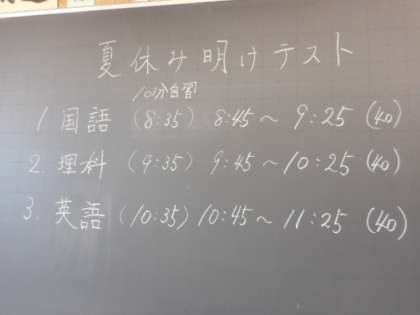 夏休み明けテスト
10分自習
1 国語 (8:35) 8:45〜9:25 (40)
2. 理科 (9:35) 9:45〜10:25 (40)
3. 英語 (10:35) 10:45〜11:25 (40)